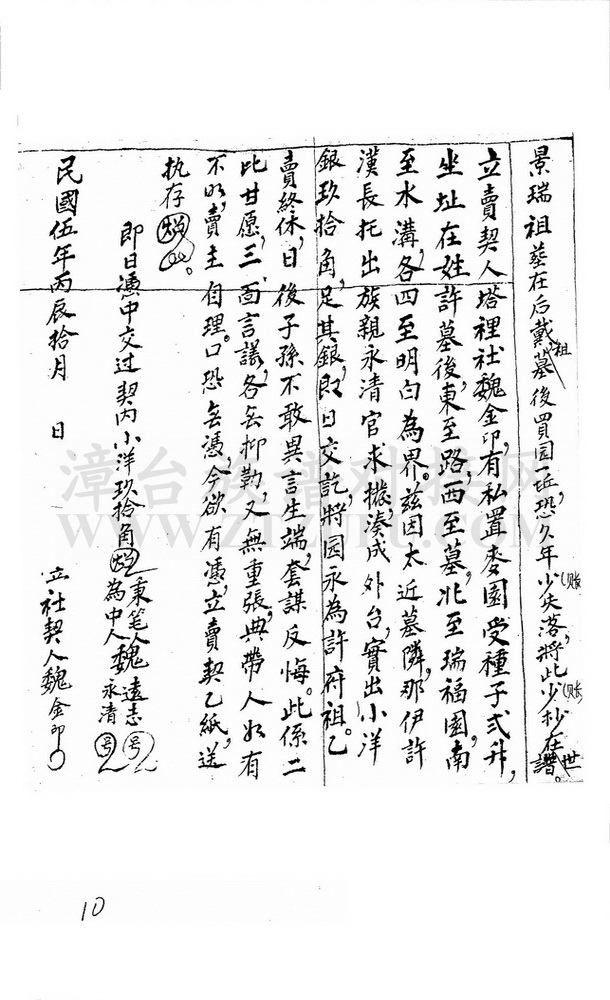 景瑞祖墓在后戴祖墓後買园一坵,恐久年少失落,將此少抄在世譜。
(賬)
(賬)
立賣契人塔裡社魏金印,有私置麥園受種子弍升,
坐址在姓許墓後,東至路,西至墓,北至瑞福園,南
至水溝,各四至明白為界。茲因太近墓隣,那伊許
漢長托出族親永清官求擬湊成外台,實出小洋
銀玖拾角,足其銀,即日交訖,將园永為許府祖。乙
賣終休,日後子孫不敢異言生端,套謀反悔。此係二
比甘愿,三面言議,各無抑勒,又無重張典帶人如有
不明,賣主自理。口恐無憑,今欲有憑,立賣契乙紙,送
执存
即日憑中交过契內小洋玖拾角
秉笔人魏遠志 号
為中人 永清 号
民國伍年丙辰拾月 日
立社契人魏金印〇
漳台族譜对接网
10